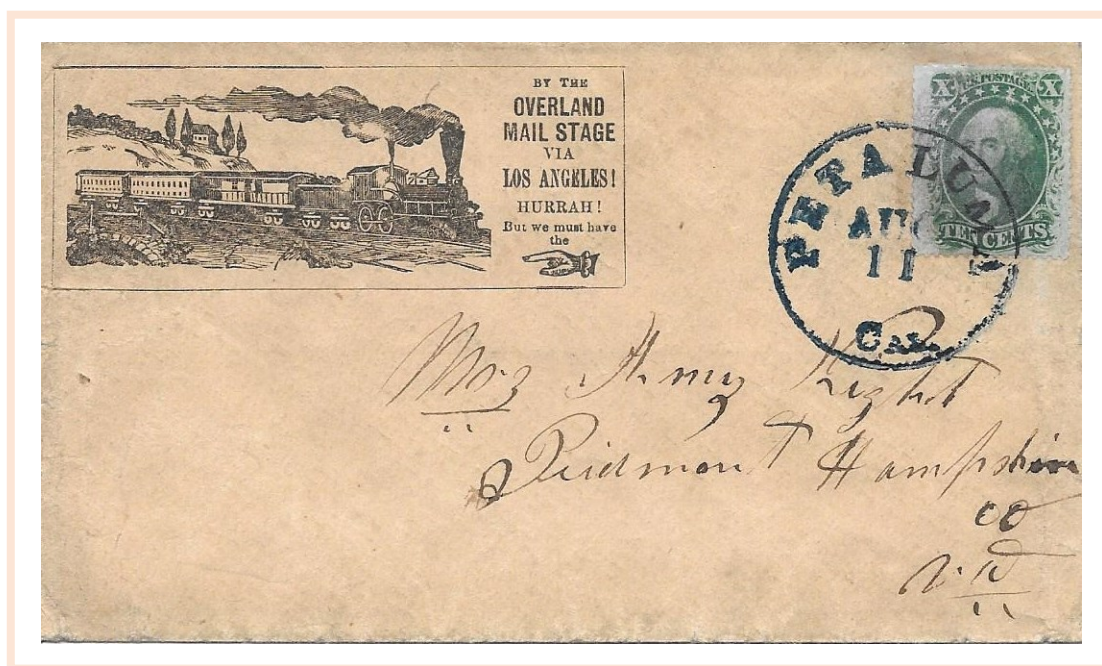 BY THE
OVERLAND
MAIL STAGE
VIA
LOS ANGELES!
HURRAH!
But we must have
the
X U.S. POSTAGE X
TEN CENTS
PETALUMA
AUG
11
Cal.
Amy Knight
Piedmont Hampshire
co
Va